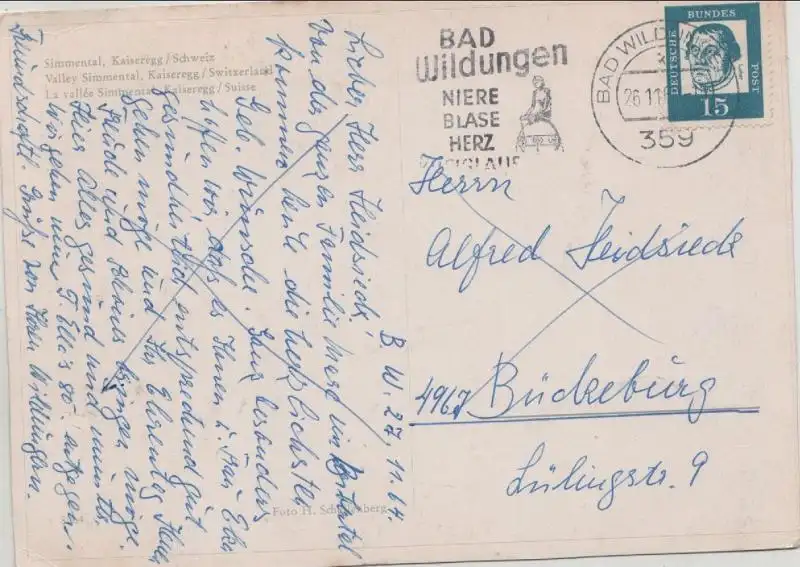 Simmental, Kaiseregg/Schweiz
Valley Simmental, Kaiseregg/Switzerland
La vallée Simmental, Kaiseregg/Suisse
BAD
Wildungen
NIERE
BLASE
HERZ
BAD WILD
26.11.6
359
DEUTSCHE BUNDESPOST
15
B. W. 27. 11. 64.
Lieber Herr Heidsieck!
Von der ganzen Familie im
kommen heute die herzlichsten
Geb. Wünsche. Ganz besonders
hoffen wir, daß es Ihnen u. Frau
gesundheitlich entsprechend gut
gehen möge und Ihr Ehrentag Ihnen
Freude und Schönes bringen möge.
Hier alles gesund und munter
wir gehen nun T. Ella's 80. entgegen.
Freundschaftl. Grüße von Ihren Wildungern.
Herrn
Alfred Heidsieck
4967 Bückeburg
Lülingstr. 9
Foto H. Schönenberg